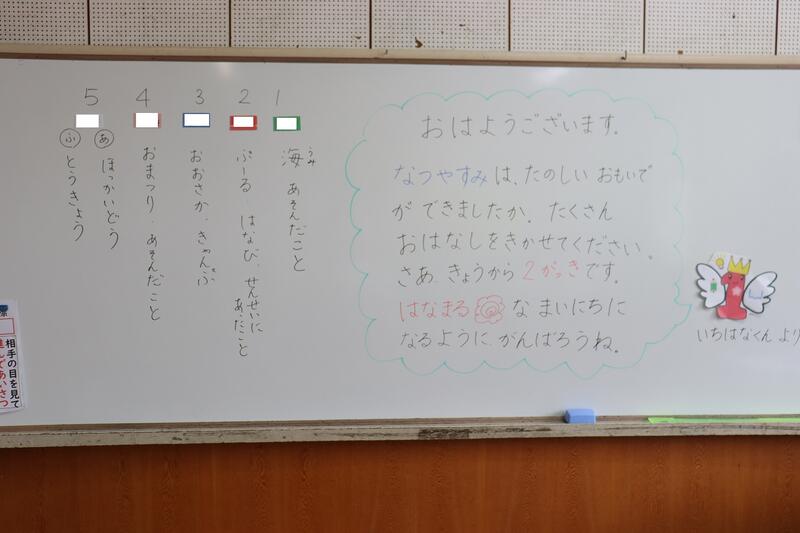 5 4 3 2 1
海 あそんだこと
うみ
ぷーる はなび、せんせいに
あったこと
おおさか、きゃんぷ
おまつり、あそんだこと
あ ほっかいどう
ふ とうきょう
おはようございます。
なつやすみは、たのしい おもいで
が できましたか。 たくさん
おはなしをきかせてください。
さあ、きょうから 2がっきです。
はなまる な まいにちに
なるように、がんばろうね。
1
いちはなくん より
相手の目を見て
進んであいさつ